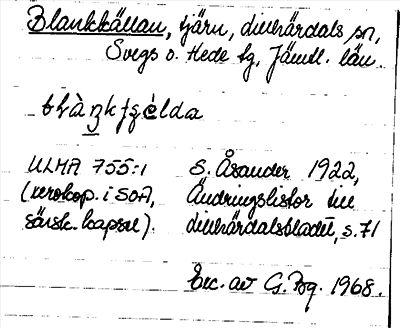 Blankkällan, tjärn, Lillhärdals sn,
Svegs o. Hede tg, Jämtl. län.
ƀlàŋkʃɕèlda
ULMA 755:1 S. Åsander 1922,
(xerokop. i SOA, Ändringslistor till
särsk. kapsel). Lillhärdalsbladet, s. 71
Exc. av G. Pog. 1968.